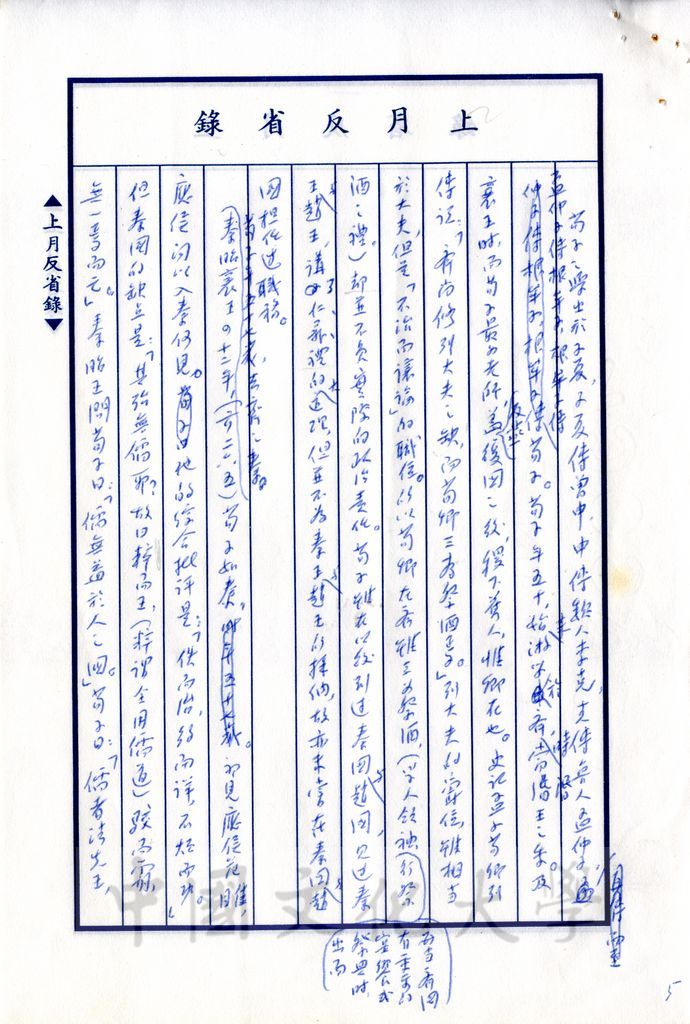 上月反省錄
荀子之學出於子夏，子夏傳曾申，申傳魏人李克，克傳魯人孟仲子，
孟仲子傳根牟子，根牟子傳
荀子。荀子年五十，始來游學於齊，時當湣王之末。及
襄王時，而荀子最為老師。為復國之後，稷下舊人，惟卿在也。史記孟子荀卿列
傳說：「齊尚修列大夫之缺，而荀卿三為祭酒焉。」列大夫的爵位，雖相當
於大夫，但是「不治而議論」的職位。所以荀卿在齊雖三為祭酒，（學人領袖
酒之禮。）却並不負實際的政治責任。荀子雖在以後到過秦國趙國，見過秦
王趙王，講了仁義禮的道理，但並不為秦王趙王所採納，故亦未嘗在秦國趙
國担任過職務。
荀子年五十七歲，去齊之秦。
（秦昭襄王四十二年，（前二六五）荀子如秦，時年五十七歲。初見應侯范雎，
應侯問以入秦何見。荀子曰他的綜合批評是：「佚而治，約而詳，不煩而功。」
但秦國的缺点是：「其殆無儒耶？故曰粹而王，（粹謂全用儒道）駁而霸
無一焉而亡」。秦昭王問荀子曰：「儒無益於人之國。」荀子曰：「儒者法先王，
而當齊國
有重要的
宴饗或
祭典時，
出而
▲上月反省錄▼
中國文化大學
5